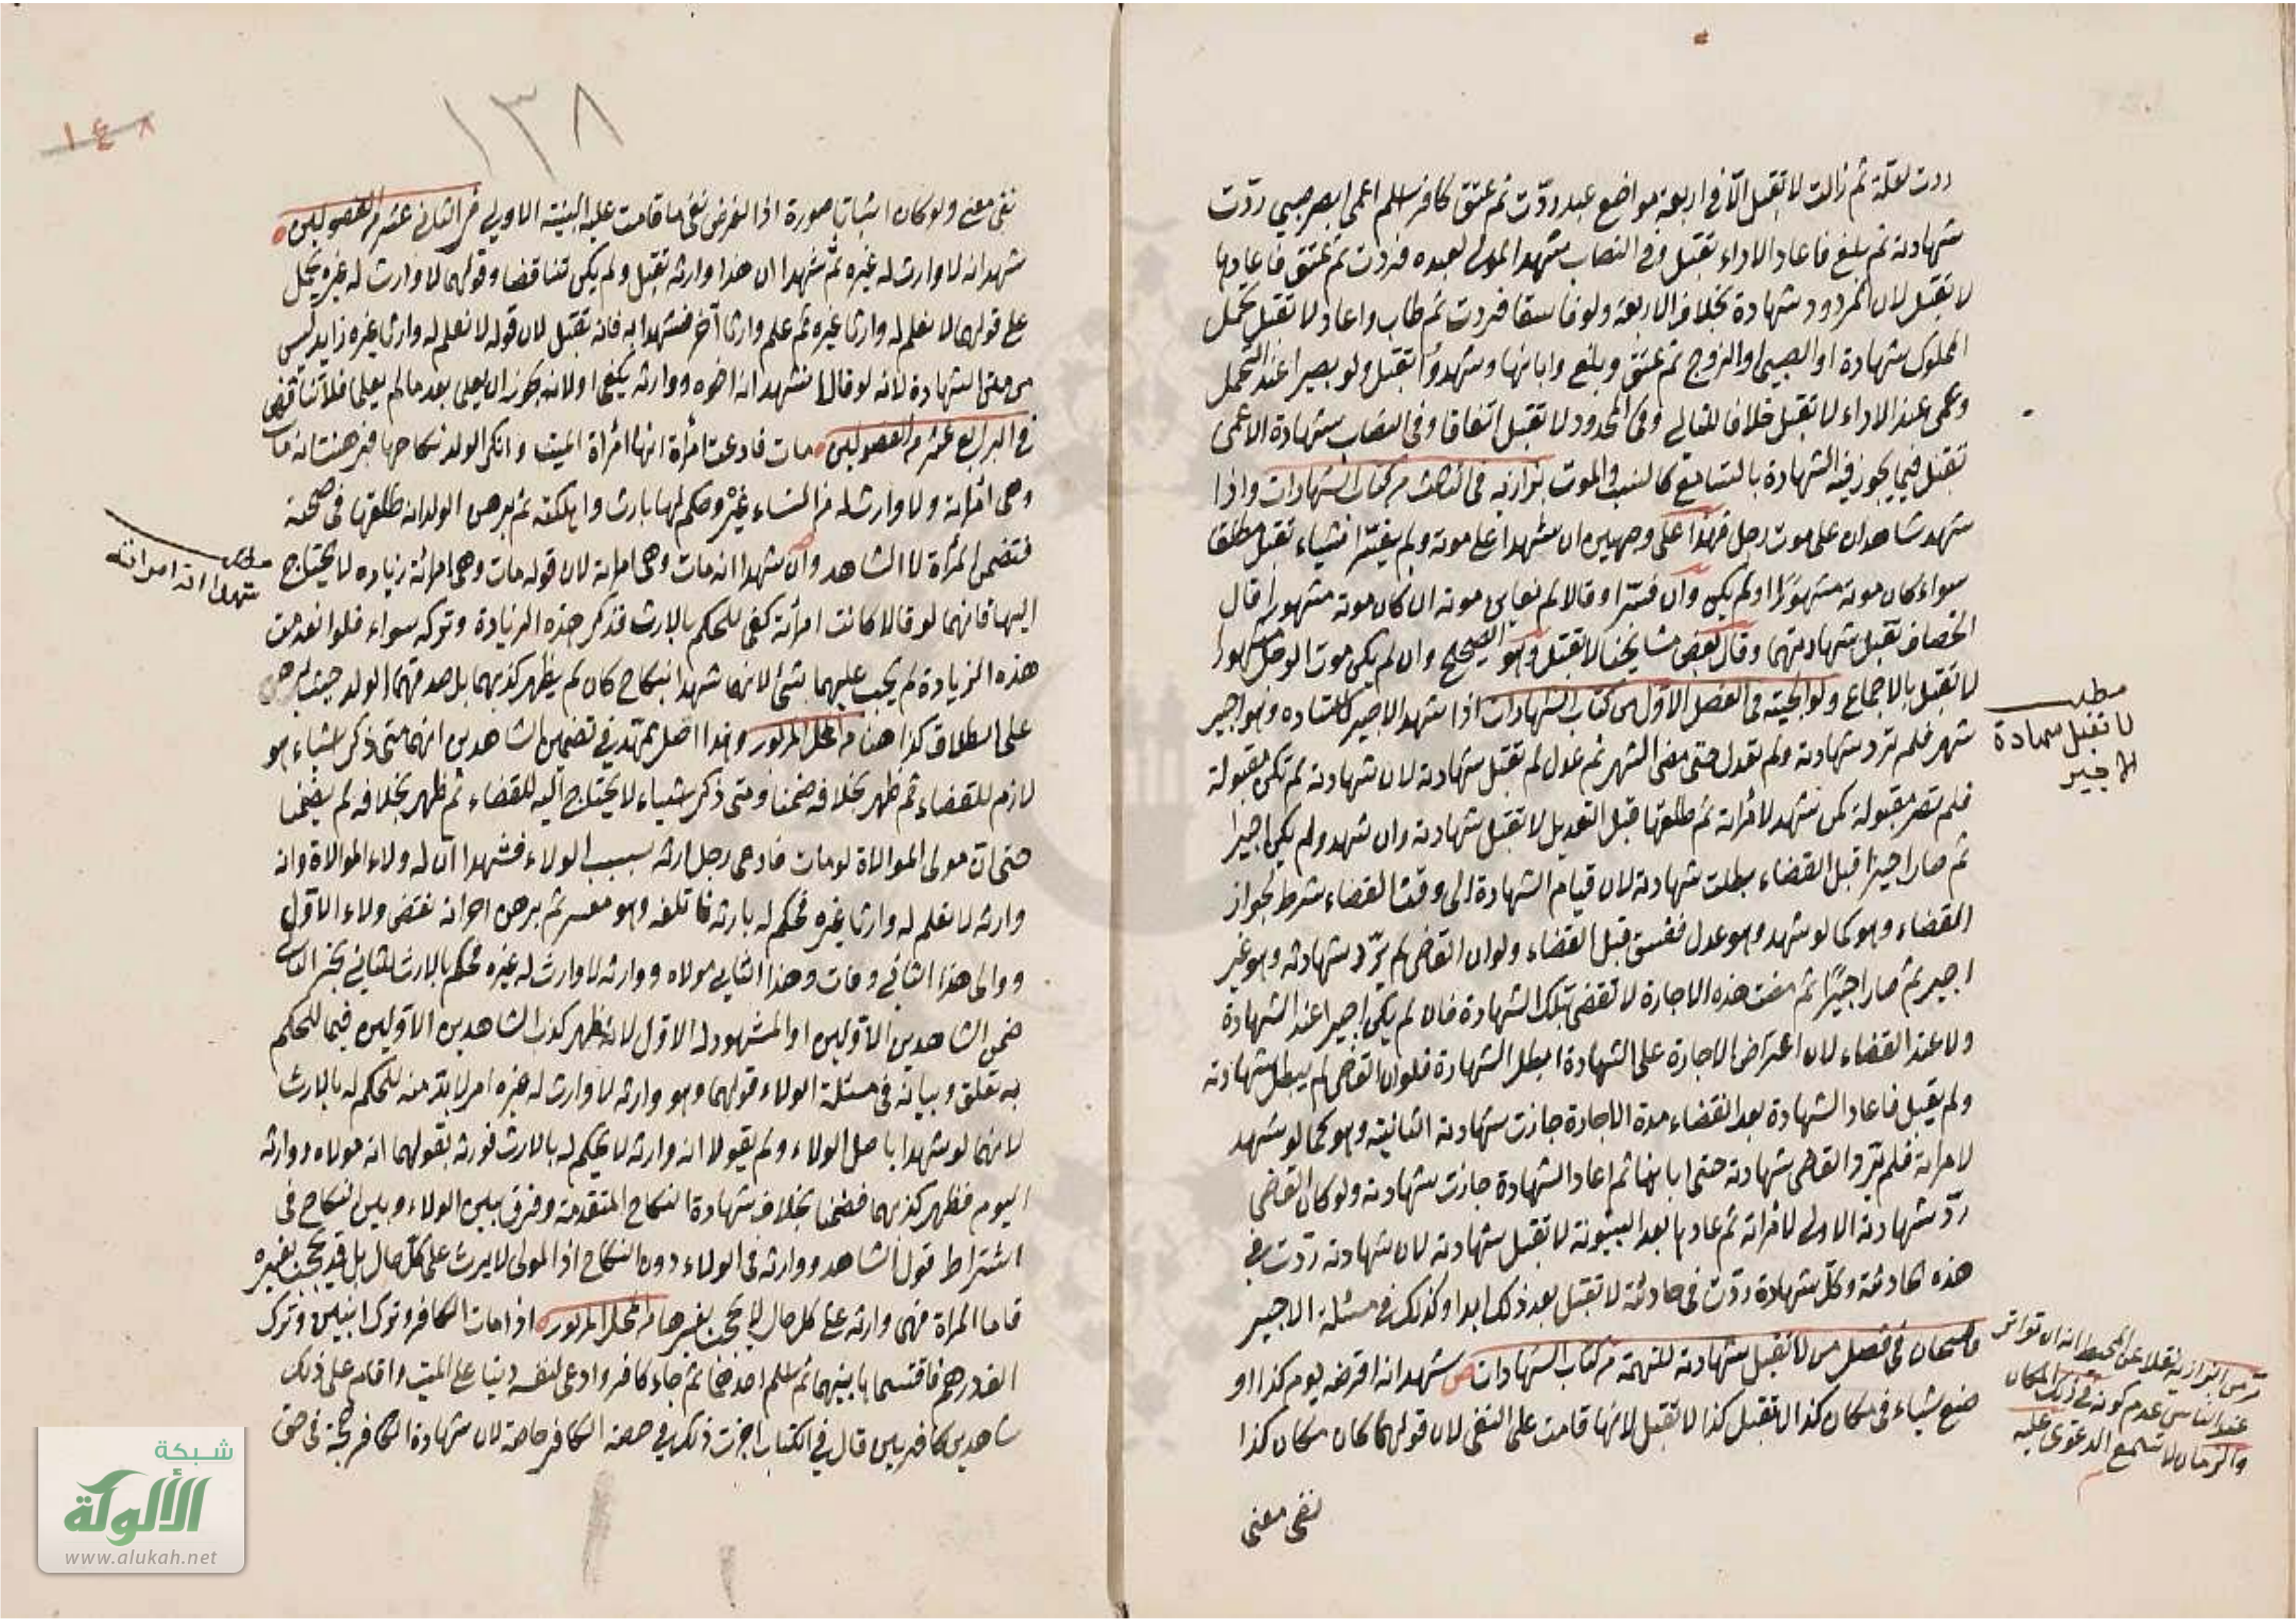 ردت لعلة ثم زالت لا تقبل الا في اربعة مواضع عبد ردت ثم عتق كافر اسلم اعمى ابصر صبي ردت
شهادته ثم بلغ فاعاد الاداء تقبل وفي النصاب شهد المولى لعبده فردت ثم عتق فاعادها
لا تقبل لان المردود شهادة بخلاف الاربعة ولو فاسقا فردت ثم طاب واعاد لا تقبل تحمل
المملوك شهادة او الصبي او الزوج ثم عتق وبلغ وابانها وشهدوا تقبل ولو بصيرا عند التحمل
وعمى عند الاداء لا تقبل خلافا للثاني وفي الحدود لا تقبل اتفاقا وفي النصاب شهادة الاعمى
تقبل فيما يجوز فيه الشهادة بالتسامع كالنسب والموت بزازية في الثالث من كتاب الشهادات واذا
شهد شاهدان على موت رجل فهذا على وجهين ان شهدا على موته ولم يفسرا شياء تقبل مطلقا
سواء كان موته مشهورا او لم يكن وان فسرا وقالا لم نعاين موته ان كان موته مشهورا قال
الخصاف تقبل شهادتهما وقال بعض مشايخنا لا تقبل وهو الصحيح وان لم يكن موت الرجل مشهورا
لا تقبل بالاجماع ولوالجية في الفصل الاول من كتاب الشهادات اذا شهد الاجير لاستاده وهو اجير
شهر فلم ترد شهادته ولم تعدل حتى مضى الشهر ثم عدل لم تقبل شهادته لان شهادته لم تكن مقبولة
فلم تصر مقبولة كمن شهد لامراته ثم طلقها قبل التعديل لا تقبل شهادته وان شهد ولم يكن اجيرا
ثم صار اجيرا قبل القضاء بطلت شهادته لان قيام الشهادة الى وقت القضاء شرط لجواز
القضاء وهو كما لو شهد وهو عدل ففسق قبل القضاء ولو ان القاضي لم يرد شهادته وهو غير
اجير ثم صار اجيرا ثم مضت هذه الاجارة لا تقضى بتلك الشهادة فان لم يكن اجيرا عند الشهادة
ولا عند القضاء لان اعتراض الاجارة على الشهادة ابطل الشهادة فلو ان القاضي لم يبطل شهادته
ولم يقبل فاعاد الشهادة بعد انقضاء مدة الاجارة جازت شهادته الثانية وهو كما لو شهد
لامراته فلم يرد القاضي شهادته حتى ابانها ثم اعاد الشهادة جازت شهادته ولو كان القاضي
رد شهادته الاولى لامراته ثم عادها بعد البينونة لا تقبل شهادته لان شهادته ردت في
هذه الحادثة وكل شهادة ردت في حادثة لا تقبل بعد ذلك ابدا وكذلك في مسئلة الاجير
قاضيخان في فصل من لا تقبل شهادته للتهمة من كتاب الشهادات شهد انه اقرضه يوم كذا او
صنع شياء في مكان كذا لا تقبل كذا لا تقبل لانها قامت على النفي لان قولهما كان مكان كذا
نفى معنى
مطلب
لا تقبل شهادة
الاجير
البزازية نقلا عن المحيط انه ان تواتر
عند الناس عدم كونه في ذلك المكان
والزمان لا تسمع الدعوى عليه
١٣٨
١٤٨
نفى معنى ولو كان اثباتا صورة اذ الغرض نفى ما قامت عليه البينة الاولى من الثاني عشر من الفصولين
شهد انه لا وارث له غيره ثم شهدا ان هذا وارثه تقبل ولم يكن تناقضا وقولهما لا وارث له غيره يحمل
على قولهما لا نعلم له وارثا غيره ثم علم وارثا آخر فشهدا به فانه تقبل لان قوله لا نعلم له وارثا غيره زايد ليس
من متن الشهادة لانه لو قالا نشهد انه اخوه ووارثه يكفى ولانه يجوز ان يعلم بعد ما لم يعلم فلا تناقض
في الرابع عشر من الفصولين مات فادعت امرأة انها امرأة الميت وانكر الولد نكاحها فبرهنت انه مات
وهي امرأته ولا وارث له من النساء غيره وحكم لها بارث واهلكته ثم برهن الولد انه طلقها في صحته
فتضمن المرأة لا الشاهد وان شهدا انه مات وهي امرأته لان قوله مات وهي امرأته زياده لا يحتاج
اليها فانهما لو قالا كانت امرأته كفى للحكم بالارث فذكر هذه الزيادة وتركه سواء فلو انعدمت
هذه الزيادة لم يجب عليهما شئ لانهما شهدا بنكاح كان لم يظهر كذبهما بل صدقهما الولد حيث برهن
على الطلاق كذا هنا من المحل المزبور وهذا اصل ممهد في تضمين الشاهدين انهما متى ذكر اشياء هو
لازم للقضاء ثم ظهر بخلافه ضمنا ومتى ذكر شياء لا يحتاج اليه للقضاء ثم ظهر بخلافه لم يضمنا
حتى ان مولى الموالاة لو مات فادعى رجل ارثه بسبب الولاء فشهدا ان له ولاء الموالاة وانه
وارثه لا نعلم له وارثا غيره فحكم له بارثه فاتلفه وهو معسر ثم برهن اخر انه نقض ولاء الاول
ووالى هذا الثاني ومات وهذا الثاني مولاه ووارثه لا وارث له غيره فحكم بالارث للثاني يخير الثاني
ضمن الشاهدين الاولين او المشهود له الاول لانه ظهر كذب الشاهدين الاولين فيما للحكم
به تعلق وبيانه في مسئلة الولاء قولهما وهو وارثه لا وارث له غيره امر لابد منه للحكم له بالارث
لانهما لو شهدا باصل الولاء ولم يقولا انه وارثه لا يحكم له بالارث فورثه بقولهما انه مولاه ووارثه
اليوم فظهر كذبهما فضمنا بخلاف شهادة النكاح المتقدمة وفرق بين الولاء وبين النكاح في
اشتراط قول الشاهد ووارثه في الولاء دون النكاح اذ المولى لا يرث على كل حال بل قد يحجب بغيره
فاما المرأة فهي وارثه على كل حال لا تحجب بغيرها من المحل المزبور اذا مات الكافر وترك ابنين وترك
الفدرهم فاقتسماها بينهما ثم اسلم احدهما ثم جاء كافر وادعى لنفسه دينا على الميت واقام على ذلك
شاهدين كافرين قال في الكتاب اجزت ذلك في حصة الكافر خاصة لان شهادة الكافر حجة في حق
مطلب
شهدا انه امراته
شبكة
الألوكة
www.alukah.net